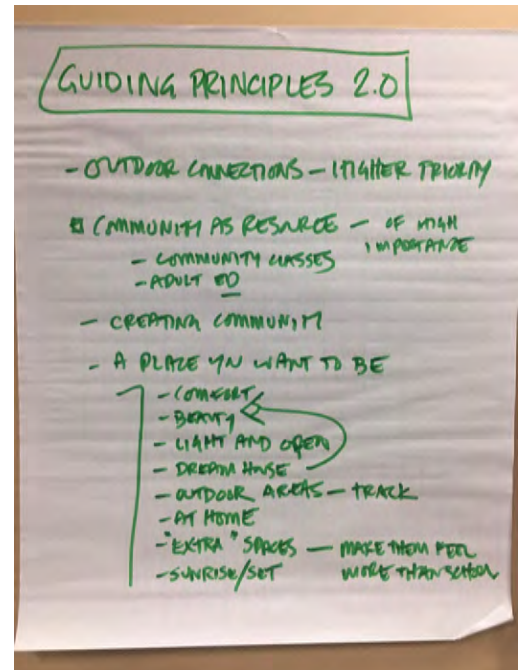 GUIDING PRINCIPLES 2.0
- OUTDOOR CONNECTIONS - HIGHER PRIORITY
COMMUNITY AS RESOURCE - OF HIGH
IMPORTANCE
- COMMUNITY CLASSES
- ADULT ED
- CREATING COMMUNITY
- A PLACE YOU WANT TO BE
- COMFORT
- BEAUTY
- LIGHT AND OPEN
- DREAM HOUSE
- OUTDOOR AREAS - TRACK
- AT HOME
- "EXTRA" SPACES - MAKE THEM FEEL
MORE THAN SCHOOL
- SUNRISE/SET